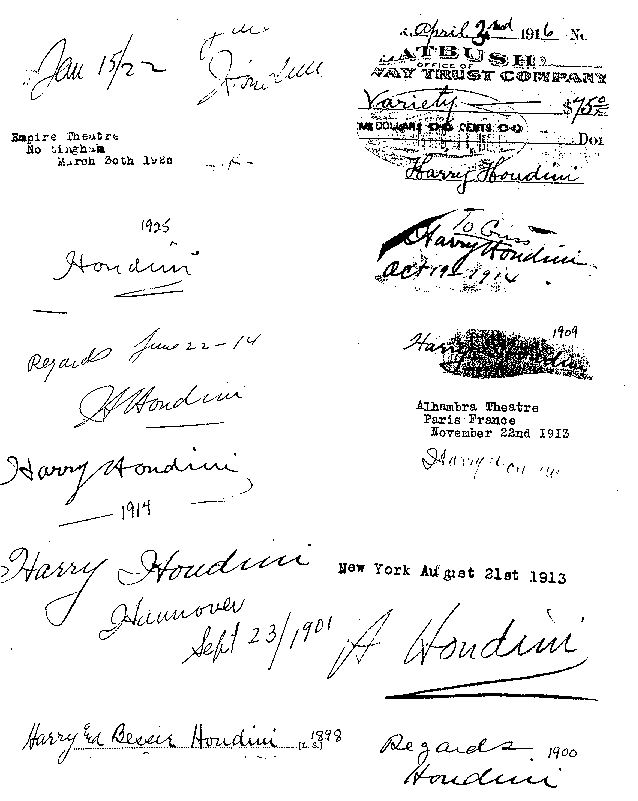 Jan 15/22
Houdini
Empire Theatre
No tingham
March 30th 19
1925
Houdini
Regards June 22-14
H Houdini
Harry Houdini
1914
Harry Houdini
Hannover
Sept 23/1901
Harry &d Bessie Houdini [L.S.] 1898
April 22nd 1916 No.
ATBUSH
OFFICE OF
WAY TRUST COMPANY
Variety $75
DOLLARS CENTS Dol
Harry Houdini
To Guss
Harry Houdini
Oct 19 - 1914
1909
Harry Houdini
Alhambra Theatre
Paris France
November 22nd 1913
Harry Hou
New York August 21st 1913
H Houdini
Regards 1900
Houdini